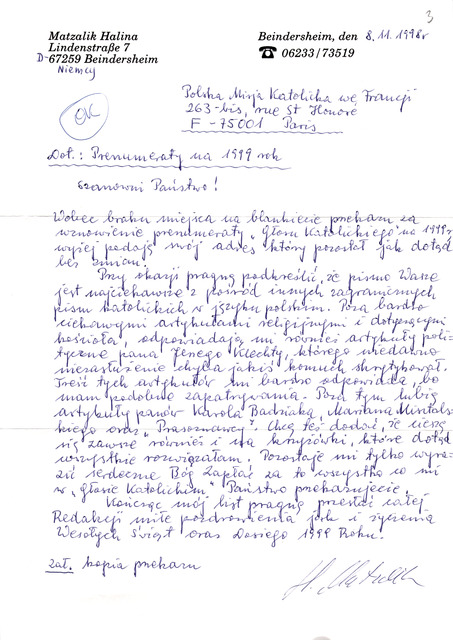 3
Matzalik Halina
Lindenstraße 7
D-67259 Beindersheim
Niemcy
Beindersheim, den 8.11.1998r
☎ 06233/73519
OK
Polska Misja Katolicka we Francji
263-bis, rue St Honoré
F-75001 Paris
Dot.: Prenumeraty na 1999 rok
Szanowni Państwo!
Wobec braku miejsca na blankiecie przekazu za
wznowienie prenumeraty „Głosu Katolickiego" na 1999r.
wyżej podaję swój adres który pozostał jak dotąd
bez zmian.
Przy okazji pragnę podkreślić, że pismo Wasze
jest najciekawsze z pośród innych zagranicznych
pism katolickich w języku polskim. Poza bardzo
ciekawymi artykułami religijnymi i dotyczącymi
kościoła, odpowiadają mi również artykuły poli-
tyczne pana Jerzego Klechty, którego niedawno
niezasłużenie chyba jakiś komuch skrytykował.
Treść tych artykułów mi bardzo odpowiada, bo
mam podobne zapatrywania. Poza tym lubię
artykuły panów Karola Badziaka, Mariana Miszals-
kiego oraz „Prasoznawcy". Chcę też dodać, że cieszę
się zawsze również i na krzyżówki, które dotąd
wszystkie rozwiązałam. Pozostaje mi tylko wyra-
zić serdeczne Bóg Zapłać za to wszystko co mi
w „Głosie Katolickim" Państwo przekazujecie.
Kończąc mój list pragnę przesłać całej
Redakcji miłe pozdrowienia jak i życzenia
Wesołych Świąt oraz Dosiego 1999 Roku.
zał. kopia przekazu
H. Matzalik